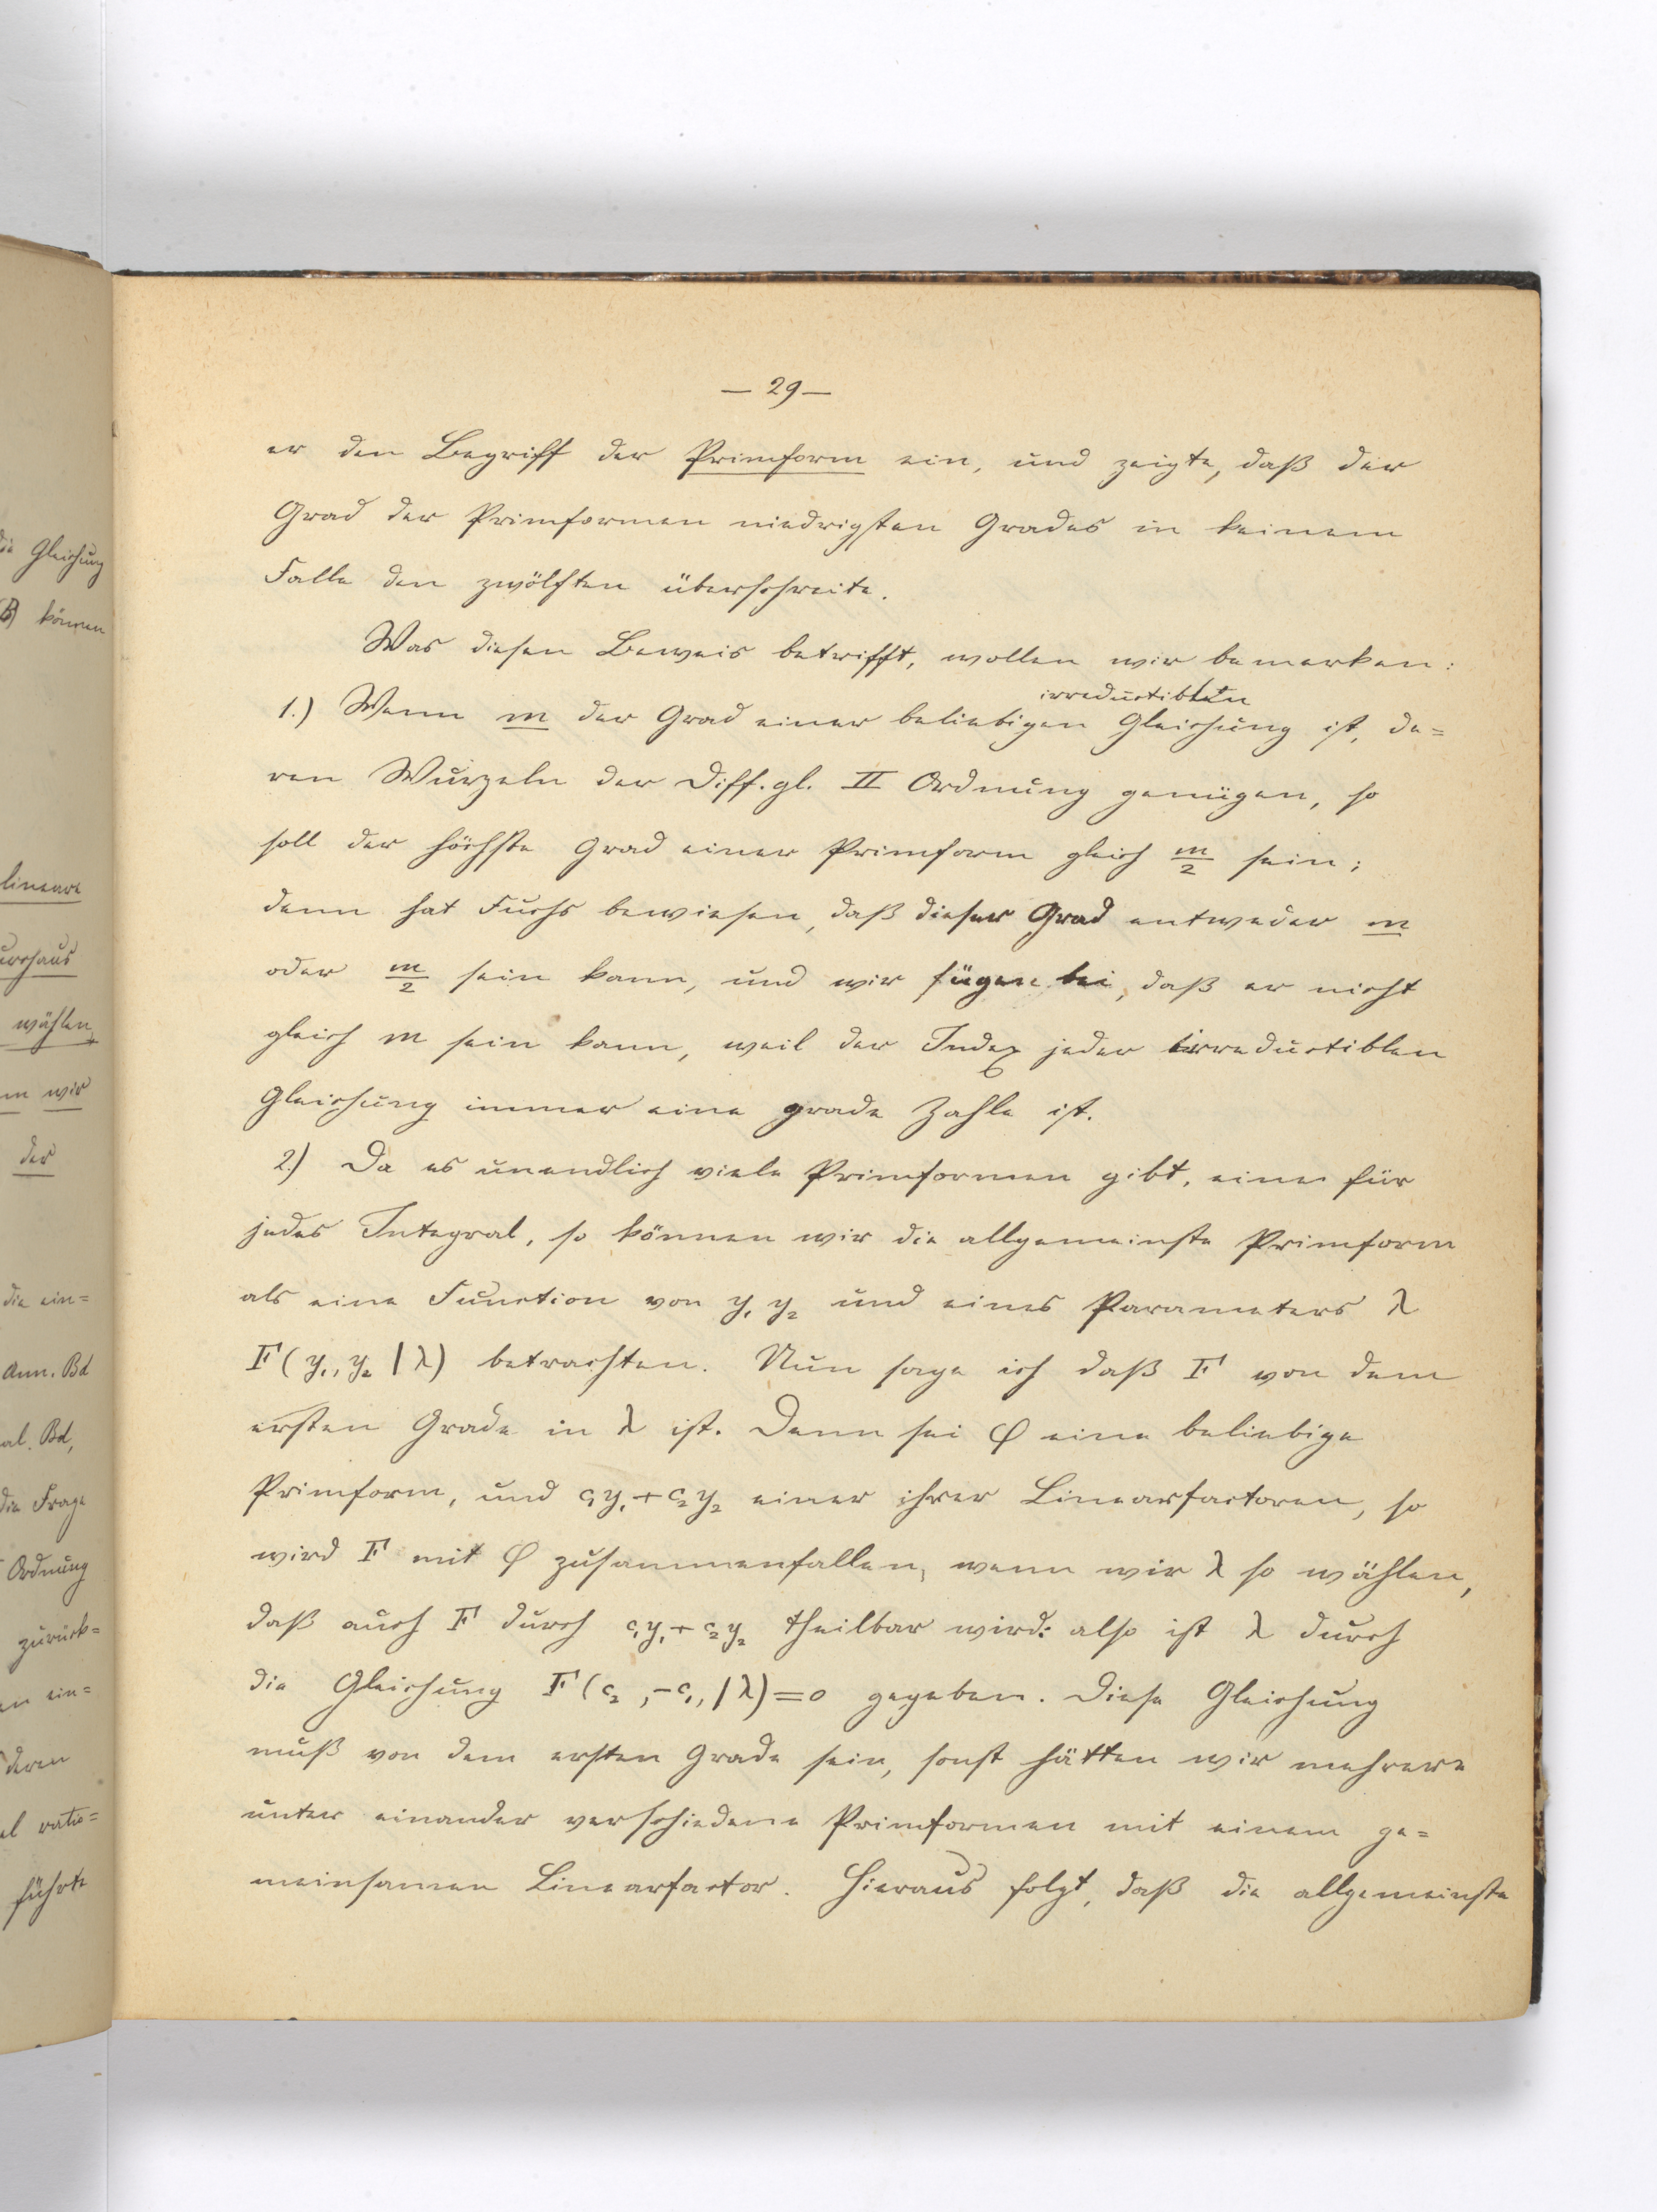 die Gleichung
B) können
lineare
durchaus
wählen,
wir
der
die ein=
Ann. Bd
Bd,
die Frage
Ordnung
zurück=
ein=
deren
ratio=
führte
— 29 —
er den Begriff der Primform ein, und zeigte, daß der
Grad der Primformen niedrigsten Grades in keinem
Falle den zwölften überschreite.
Was diesen Beweis betrifft, wollen wir bemerken:
irreductiblen
1.) Wenn m der Grad einer beliebigen Gleichung ist, de=
ren Wurzeln der Diff.gl. II Ordnung genügen, so
soll der höchste Grad einer Primform gleich m/2 sein;
denn hat Fuchs bewiesen, daß dieser Grad entweder m
oder m/2 sein kann, und wir fügen bei, daß er nicht
gleich m sein kann, weil der Index jeder irreductiblen
Gleichung immer eine grade Zahle ist.
2.) Da es unendlich viele Primformen gibt, eine für
jedes Integral, so können wir die allgemeinste Primform
als eine Function von y₁ y₂ und eines Parameters λ
F(y₁, y₂ | λ) betrachten. Nun sage ich daß F von dem
ersten Grade in λ ist. Denn sei φ eine beliebige
Primform, und c₁y₁ + c₂y₂ einer ihrer Linearfactoren, so
wird F mit φ zusammenfallen, wenn wir λ so wählen,
daß auch F durch c₁y₁ + c₂y₂ theilbar wird: also ist λ durch
die Gleichung F(c₂, -c₁, | λ) = 0 gegeben. Diese Gleichung
muß von dem ersten Grade sein, sonst hätten wir mehrere
unter einander verschiedene Primformen mit einem ge=
meinsamen Linearfactor. Hieraus folgt, daß die allgemeinste